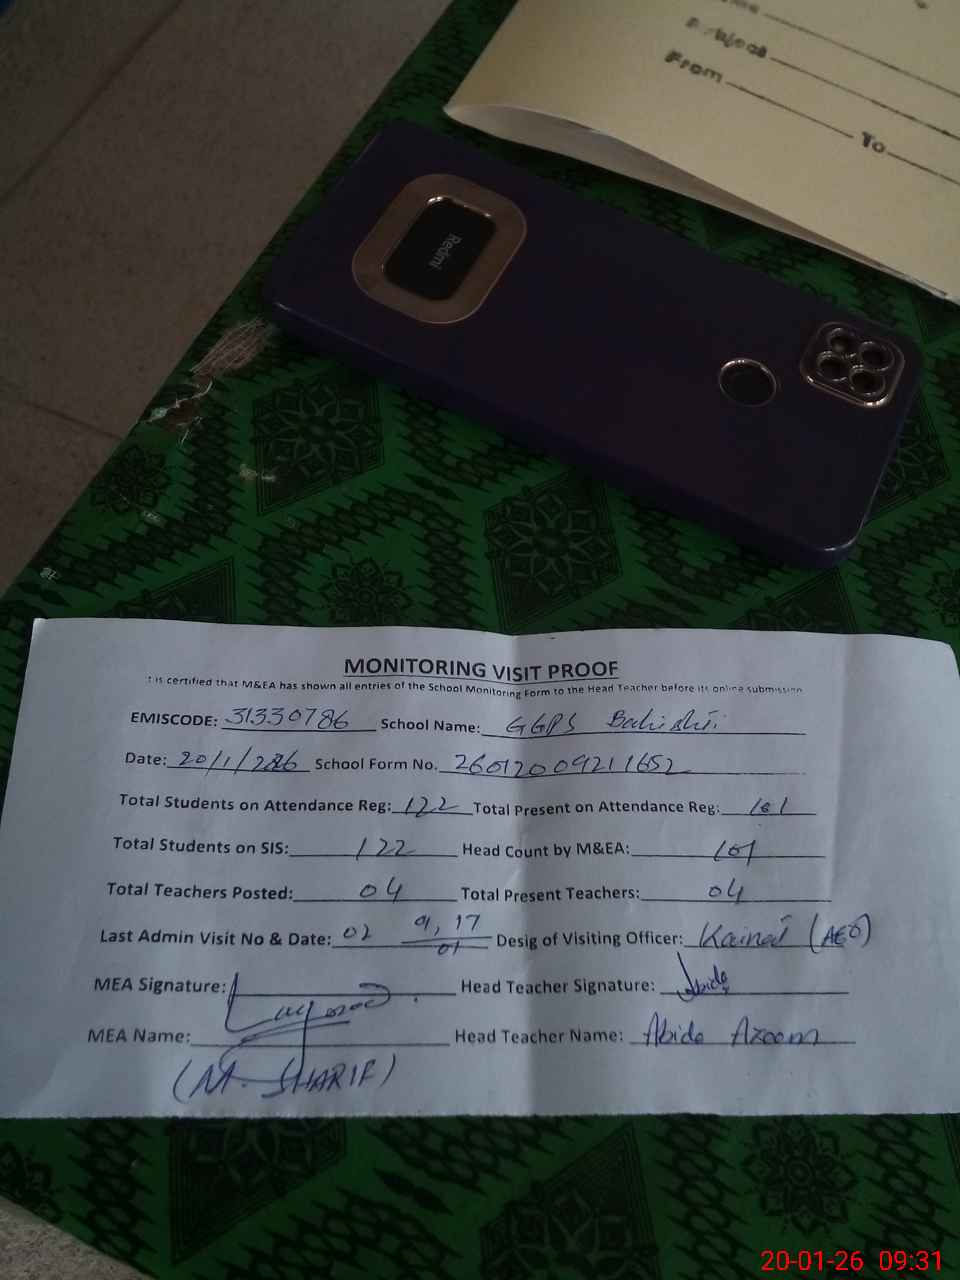 Subject
From To
Redmi
MONITORING VISIT PROOF
It is certified that M&EA has shown all entries of the School Monitoring Form to the Head Teacher before its online submission
EMISCODE: 31330786 School Name: GGPS Bahishti
Date: 20/1/2026 School Form No. 26012009211652
Total Students on Attendance Reg: 122 Total Present on Attendance Reg: 101
Total Students on SIS: 122 Head Count by M&EA: 101
Total Teachers Posted: 04 Total Present Teachers: 04
Last Admin Visit No & Date: 02 9, 17/01 Desig of Visiting Officer: Kainat (AEO)
MEA Signature: Head Teacher Signature: Abida
MEA Name: Head Teacher Name: Abida Azeem
(M. SHARIF)
20-01-26 09:31